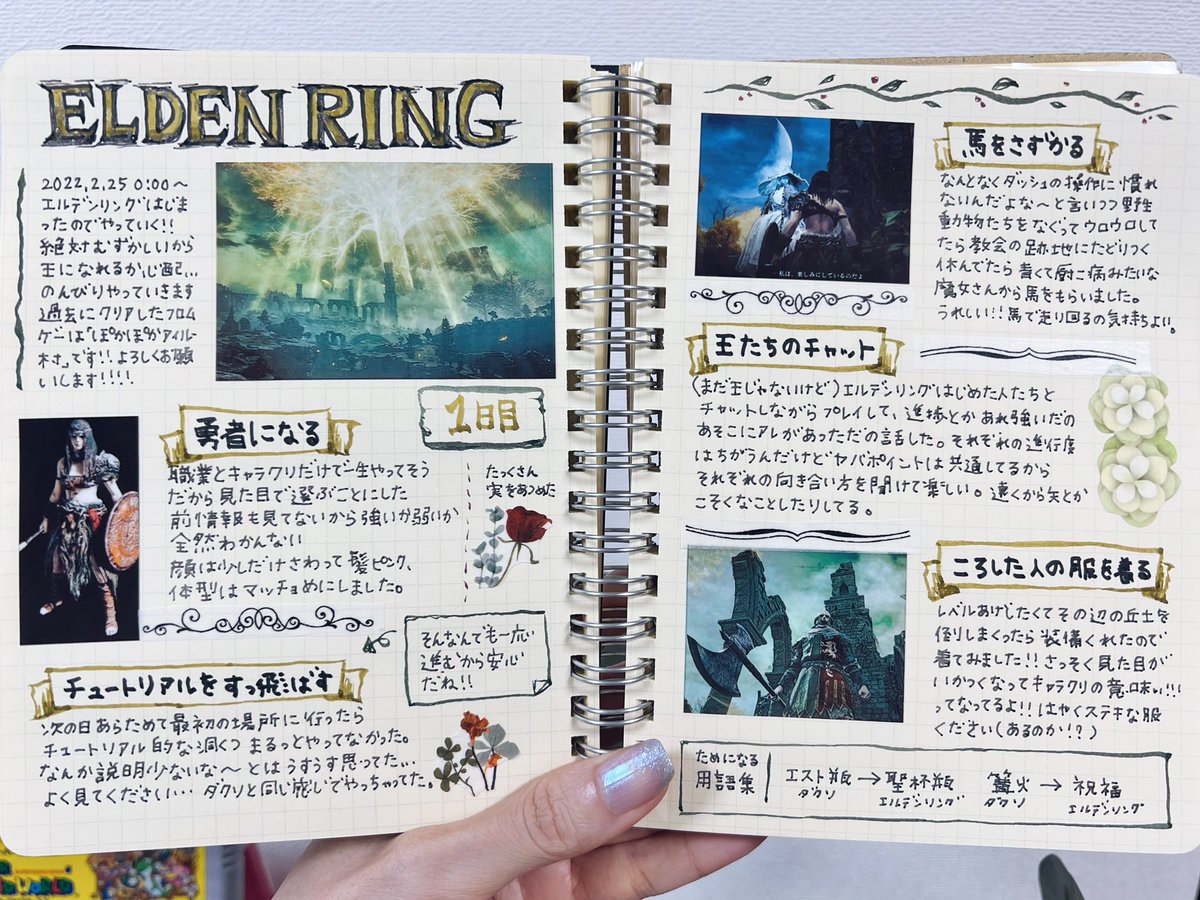 ELDEN RING
2022.2.25 0:00〜
エルデンリングはじま
ったのでやっていく!!
絶対むずかしいから
王になれるか心配...
のんびりやっていきます
過去にクリアしたフロム
ゲーは「ぽかぽかアイルー
村」です!!よろしくお願
いします!!!!
1日目
勇者になる
職業とキャラクリだけで一生やってそう
だから見た目で選ぶことにした
前情報も見てないから強いか弱いか
全然わかんない
顔は少しだけさわって髪ピンク、
体型はマッチョめにしました。
たっくさん
実をあつめた
そんなんでも一応
進むから安心
だね!!
チュートリアルをすっ飛ばす
次の日あらためて最初の場所に行ったら
チュートリアル的な洞くつ まるっとやってなかった。
なんか説明少ないな〜とはうすうす思ってた...
よく見てください… ダクソと同じ感じでやっちゃってた。
私は、楽しみにしているのだよ
馬をさずかる
なんとなくダッシュの操作に慣れ
ないんだよな〜と言いつつ野生
動物たちをなぐってウロウロして
たら教会の跡地にたどりつく
休んでたら青くて厨二病みたいな
魔女さんから馬をもらいました。
うれしい!!馬で走り回るの気持ちよい。
王たちのチャット
(まだ王じゃないけど)エルデンリングはじめた人たちと
チャットしながらプレイして、進捗とかあれ強いだの
あそこにアレがあっただの話した。それぞれの進行度
はちがうんだけどヤバポイントは共通してるから
それぞれの向き合い方を聞けて楽しい。遠くから矢とか
こそくなことしたりしてる。
ころした人の服を着る
レベルあげしたくてその辺の兵士を
倒しまくったら装備くれたので
着てみました!!さっそく見た目が
いかつくなってキャラクリの意味ない!!!
ってなってるよ!!はやくステキな服
ください(あるのか!?)
ためになる
用語集
エスト瓶→聖杯瓶
ダクソ エルデンリング
篝火→祝福
ダクソ エルデンリング